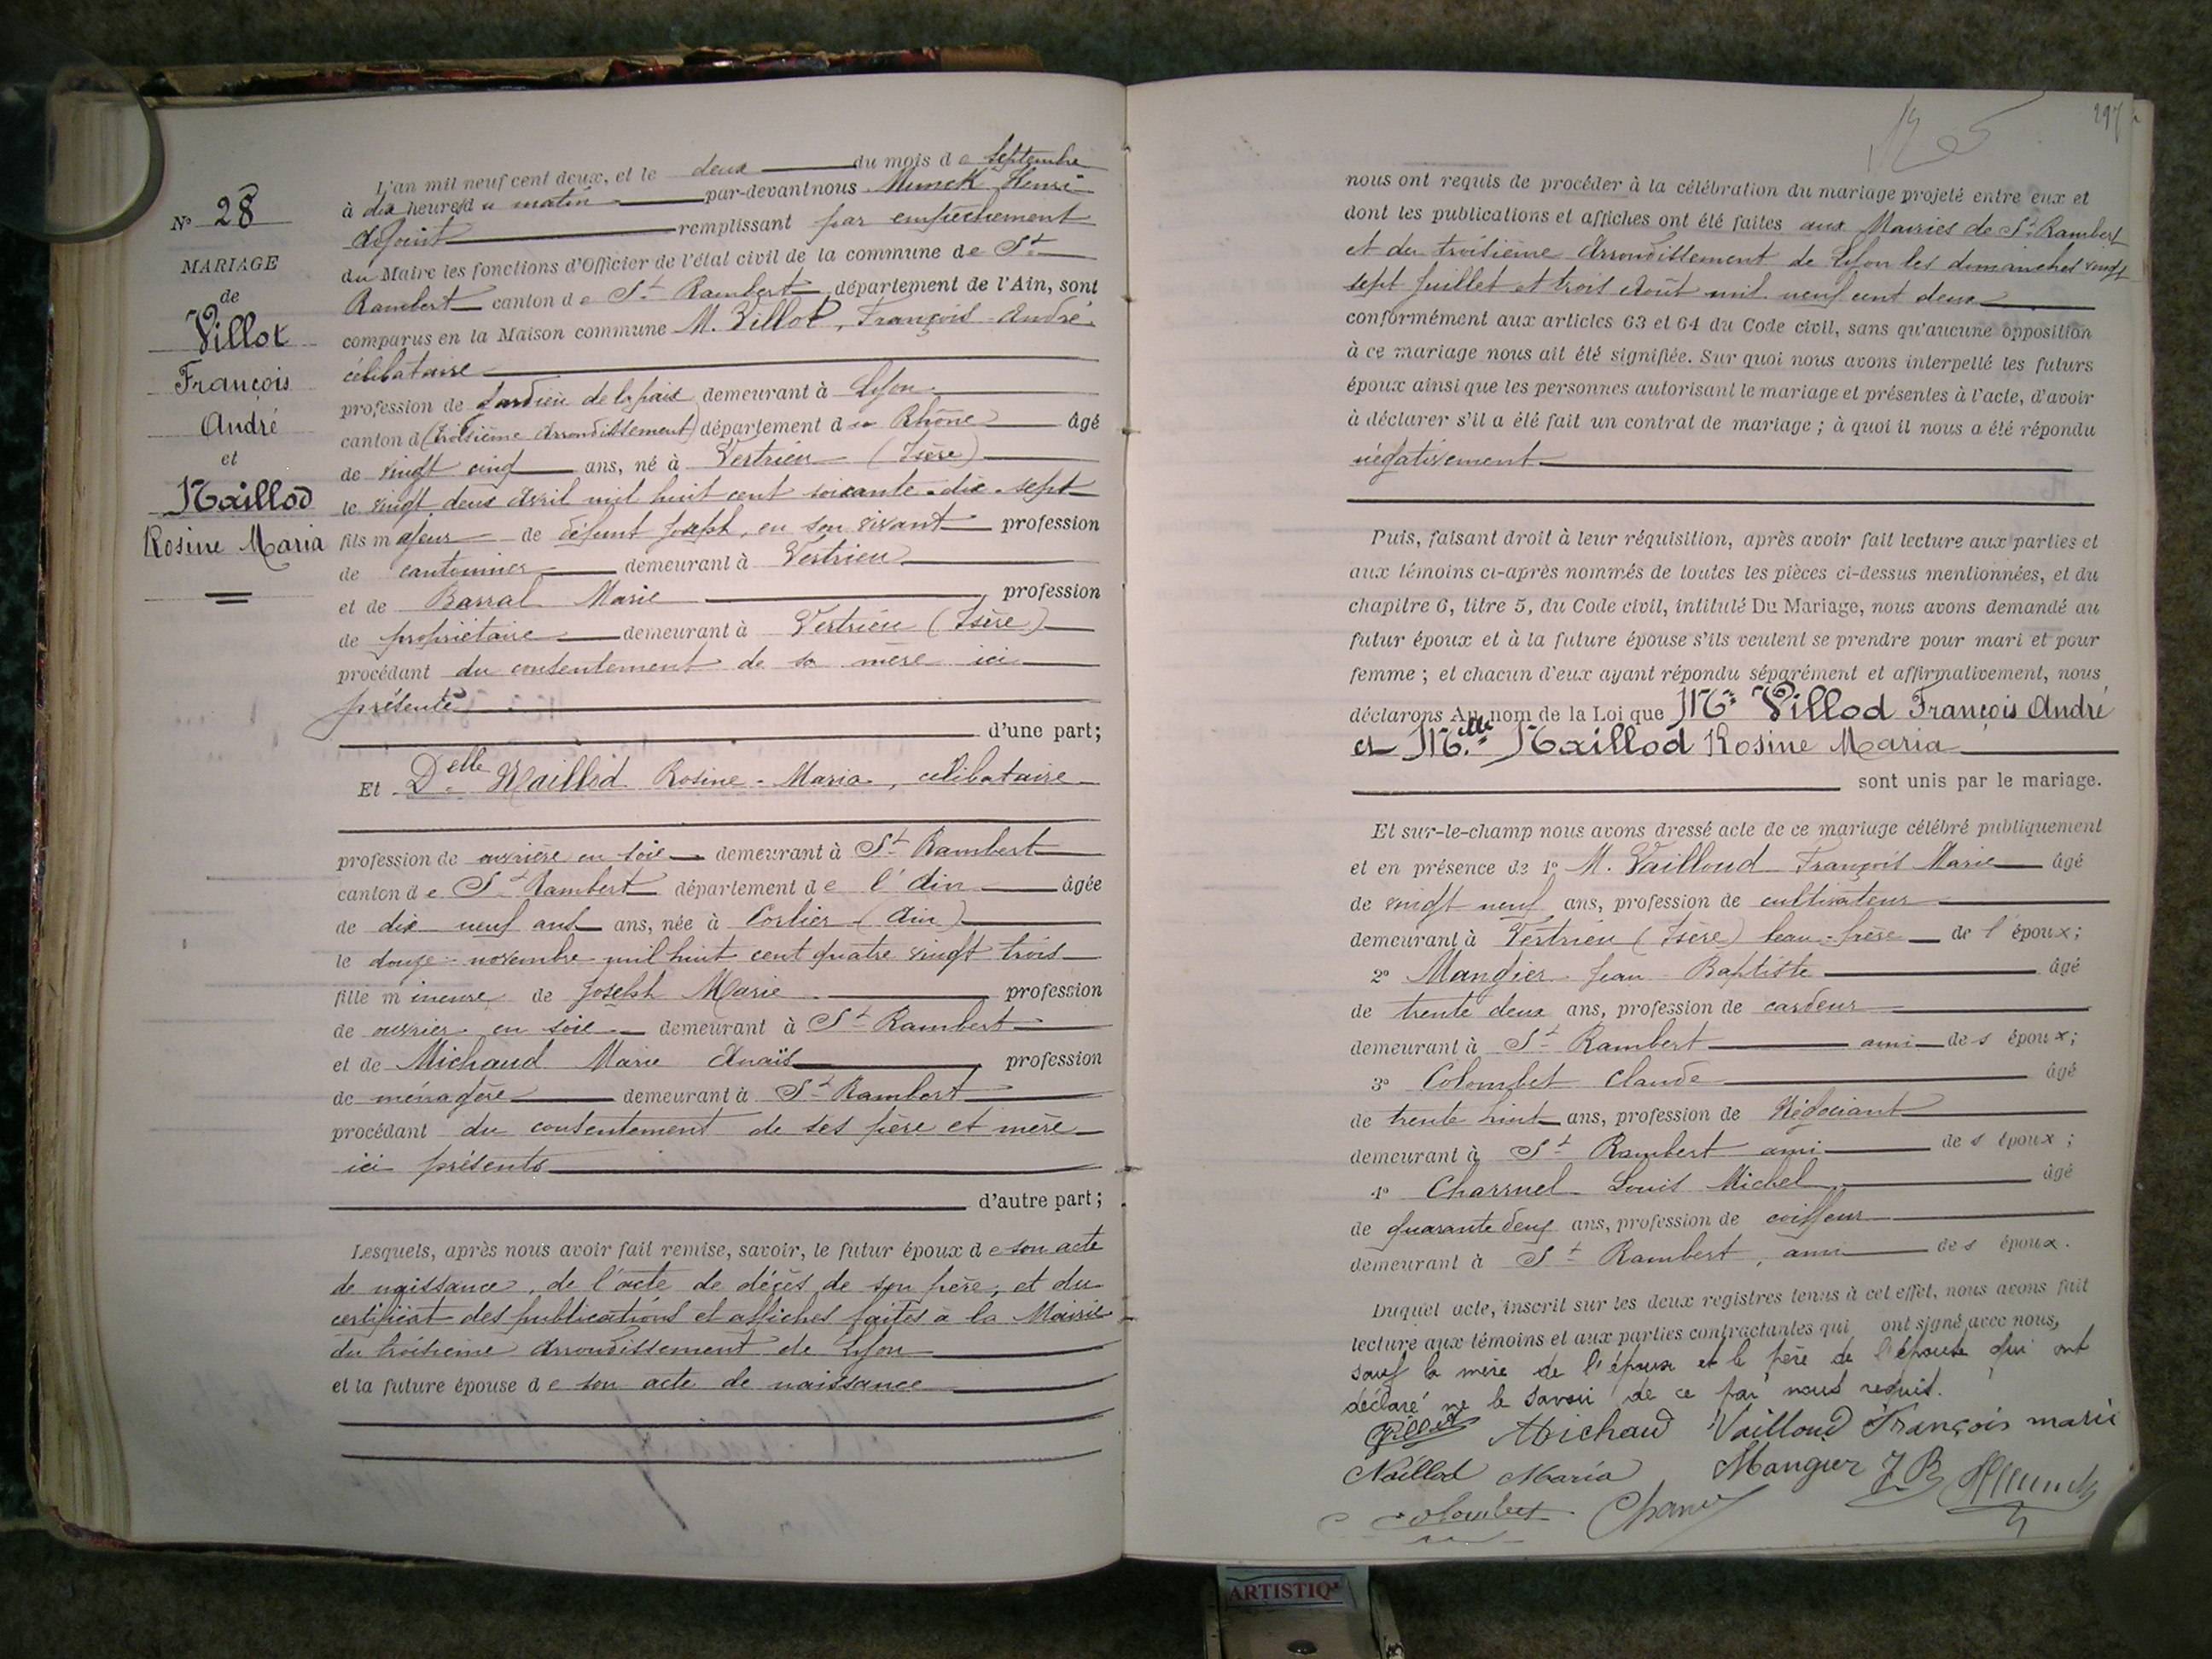 N° 28
MARIAGE
de
Villot
François
André
et
Naillod
Rosine Maria
L'an mil neuf cent deux, et le deux du mois de Septembre
à dix heures du matin par-devant nous Munck Henri
adjoint remplissant par empêchement
du Maire les fonctions d'Officier de l'état civil de la commune de St
Rambert canton de St Rambert département de l'Ain, sont
comparus en la Maison commune M. Villot, François André
célibataire
profession de Gardien de la paix demeurant à Lyon
canton d (troisième arrondissement) département du Rhône âgé
de vingt cinq ans, né à Vertrieu (Isère)
le vingt deux Avril mil huit cent soixante-dix-sept
fils majeur de défunt Joseph, en son vivant profession
de cantonnier demeurant à Vertrieu
et de Barral Marie profession
de propriétaire demeurant à Vertrieu (Isère)
procédant du consentement de sa mère ici
présente
d'une part;
Et Delle Naillod Rosine-Maria, célibataire
profession de ouvrière en soie demeurant à St Rambert
canton de St Rambert département de l'Ain âgée
de dix neuf ans ans, née à Corlier (Ain)
le douze novembre mil huit cent quatre vingt trois
fille mineure de Joseph Marie profession
de ouvrier en soie demeurant à St Rambert
et de Michaud Marie Anaïs profession
de ménagère demeurant à St Rambert
procédant du consentement de ses père et mère
ici présents
d'autre part;
Lesquels, après nous avoir fait remise, savoir, le futur époux de son acte
de naissance, de l'acte de décès de son père, et du
certificat des publications et affiches faites à la Mairie
du troisième Arrondissement de Lyon
et la future épouse de son acte de naissance
297
nous ont requis de procéder à la célébration du mariage projeté entre eux et
dont les publications et affiches ont été faites aux Mairies de St Rambert
et du troisième Arrondissement de Lyon les dimanches vingt
sept Juillet et trois Août mil neuf cent deux
conformément aux articles 63 et 64 du Code civil, sans qu'aucune opposition
à ce mariage nous ait été signifiée. Sur quoi nous avons interpellé les futurs
époux ainsi que les personnes autorisant le mariage et présentes à l'acte, d'avoir
à déclarer s'il a été fait un contrat de mariage; à quoi il nous a été répondu
négativement
Puis, faisant droit à leur réquisition, après avoir fait lecture aux parties et
aux témoins ci-après nommés de toutes les pièces ci-dessus mentionnées, et du
chapitre 6, titre 5, du Code civil, intitulé Du Mariage, nous avons demandé au
futur époux et à la future épouse s'ils veulent se prendre pour mari et pour
femme; et chacun d'eux ayant répondu séparément et affirmativement, nous
déclarons Au nom de la Loi que Mr Villod François André
et Melle Naillod Rosine Maria
sont unis par le mariage.
Et sur-le-champ nous avons dressé acte de ce mariage célébré publiquement
et en présence de 1° M. Vailloud François Marie âgé
de vingt neuf ans, profession de cultivateur
demeurant à Vertrieu (Isère) beau-frère de l'époux;
2° Mangier Jean Baptiste âgé
de trente deux ans, profession de cardeur
demeurant à St Rambert ami des époux;
3° Colombet Claude âgé
de trente huit ans, profession de Négociant
demeurant à St Rambert ami des époux;
4° Charruel Louis Michel âgé
de quarante deux ans, profession de coiffeur
demeurant à St Rambert, ami des époux.
Duquel acte, inscrit sur les deux registres tenus à cet effet, nous avons fait
lecture aux témoins et aux parties contractantes qui ont signé avec nous,
sauf la mère de l'époux et le père de l'épouse qui ont
déclaré ne le savoir de ce par nous requis.
Villot Michaud Vailloud François marie
Naillod Maria Mangier J B HMunck
Colombet
ARTISTIQ